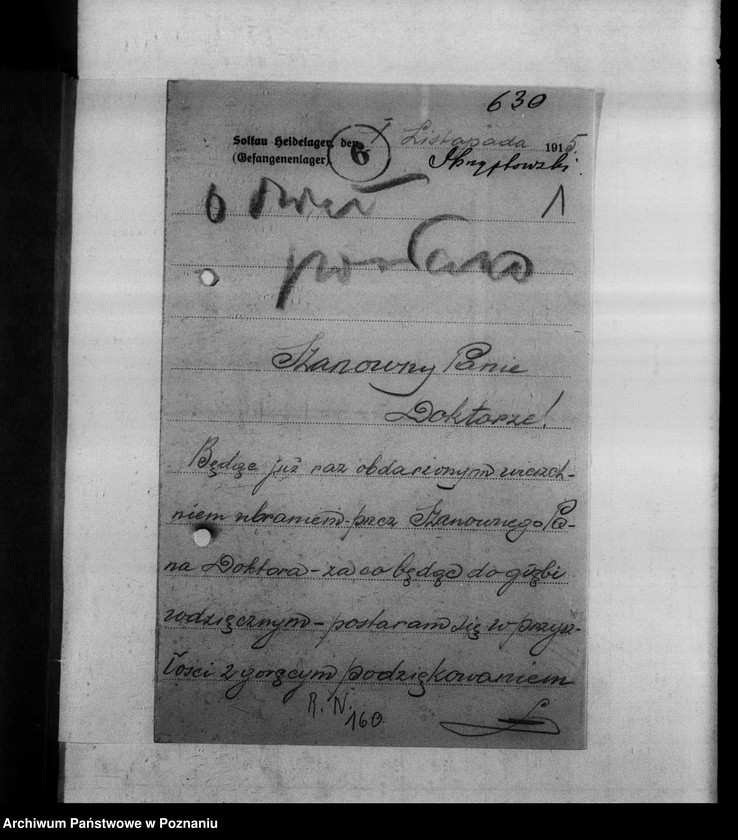 630
Soltau Heidelager, den I Listopada 1915.
(Gefangenenlager) 6
1
posłano
Szanowny Panie
Doktorze!
Będąc już raz obdarzonym wierzch-
niem ubraniem - przez Szanownego Pa-
na Doktora - za co będąc do głębi
wdzięcznym - postaram się w przysz-
łości z gorącym podziękowaniem
R. N.
160
Archiwum Państwowe w Poznaniu